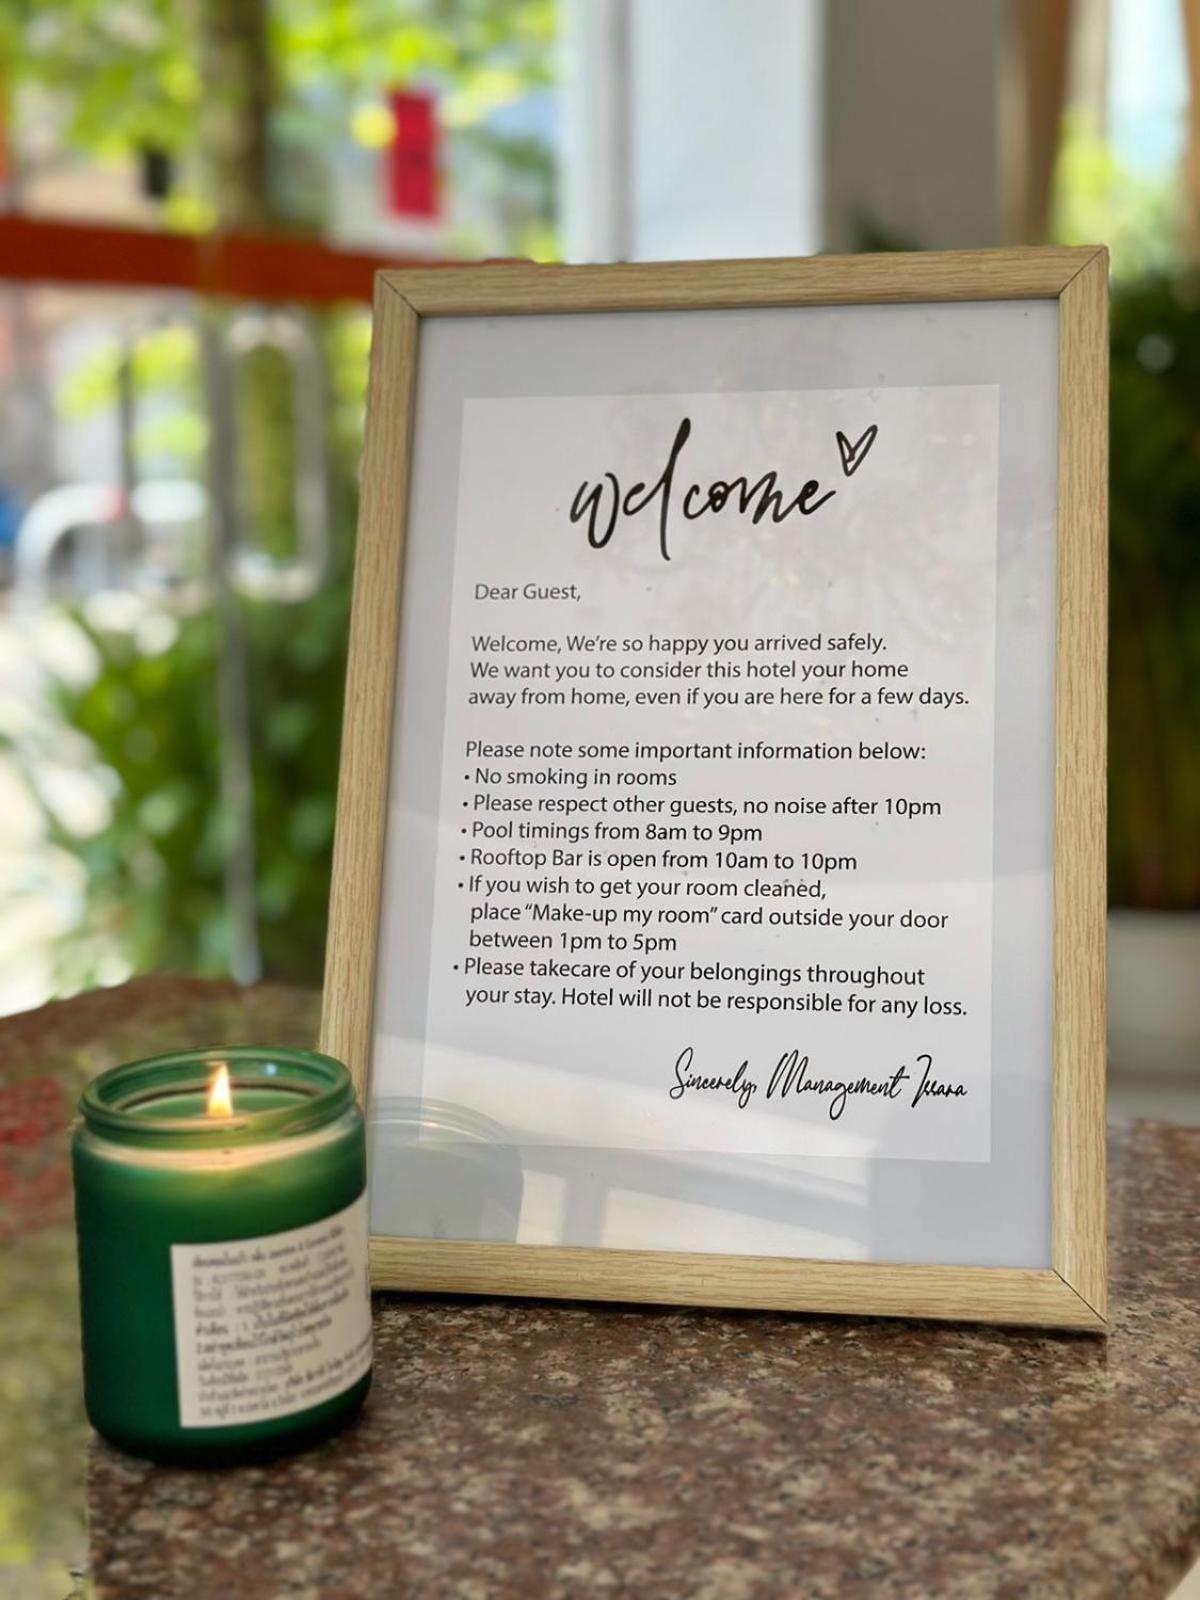 welcome
Dear Guest,
Welcome, We're so happy you arrived safely.
We want you to consider this hotel your home
away from home, even if you are here for a few days.
Please note some important information below:
• No smoking in rooms
• Please respect other guests, no noise after 10pm
• Pool timings from 8am to 9pm
• Rooftop Bar is open from 10am to 10pm
• If you wish to get your room cleaned,
place “Make-up my room” card outside your door
between 1pm to 5pm
• Please takecare of your belongings throughout
your stay. Hotel will not be responsible for any loss.
Sincerely, Management Issara